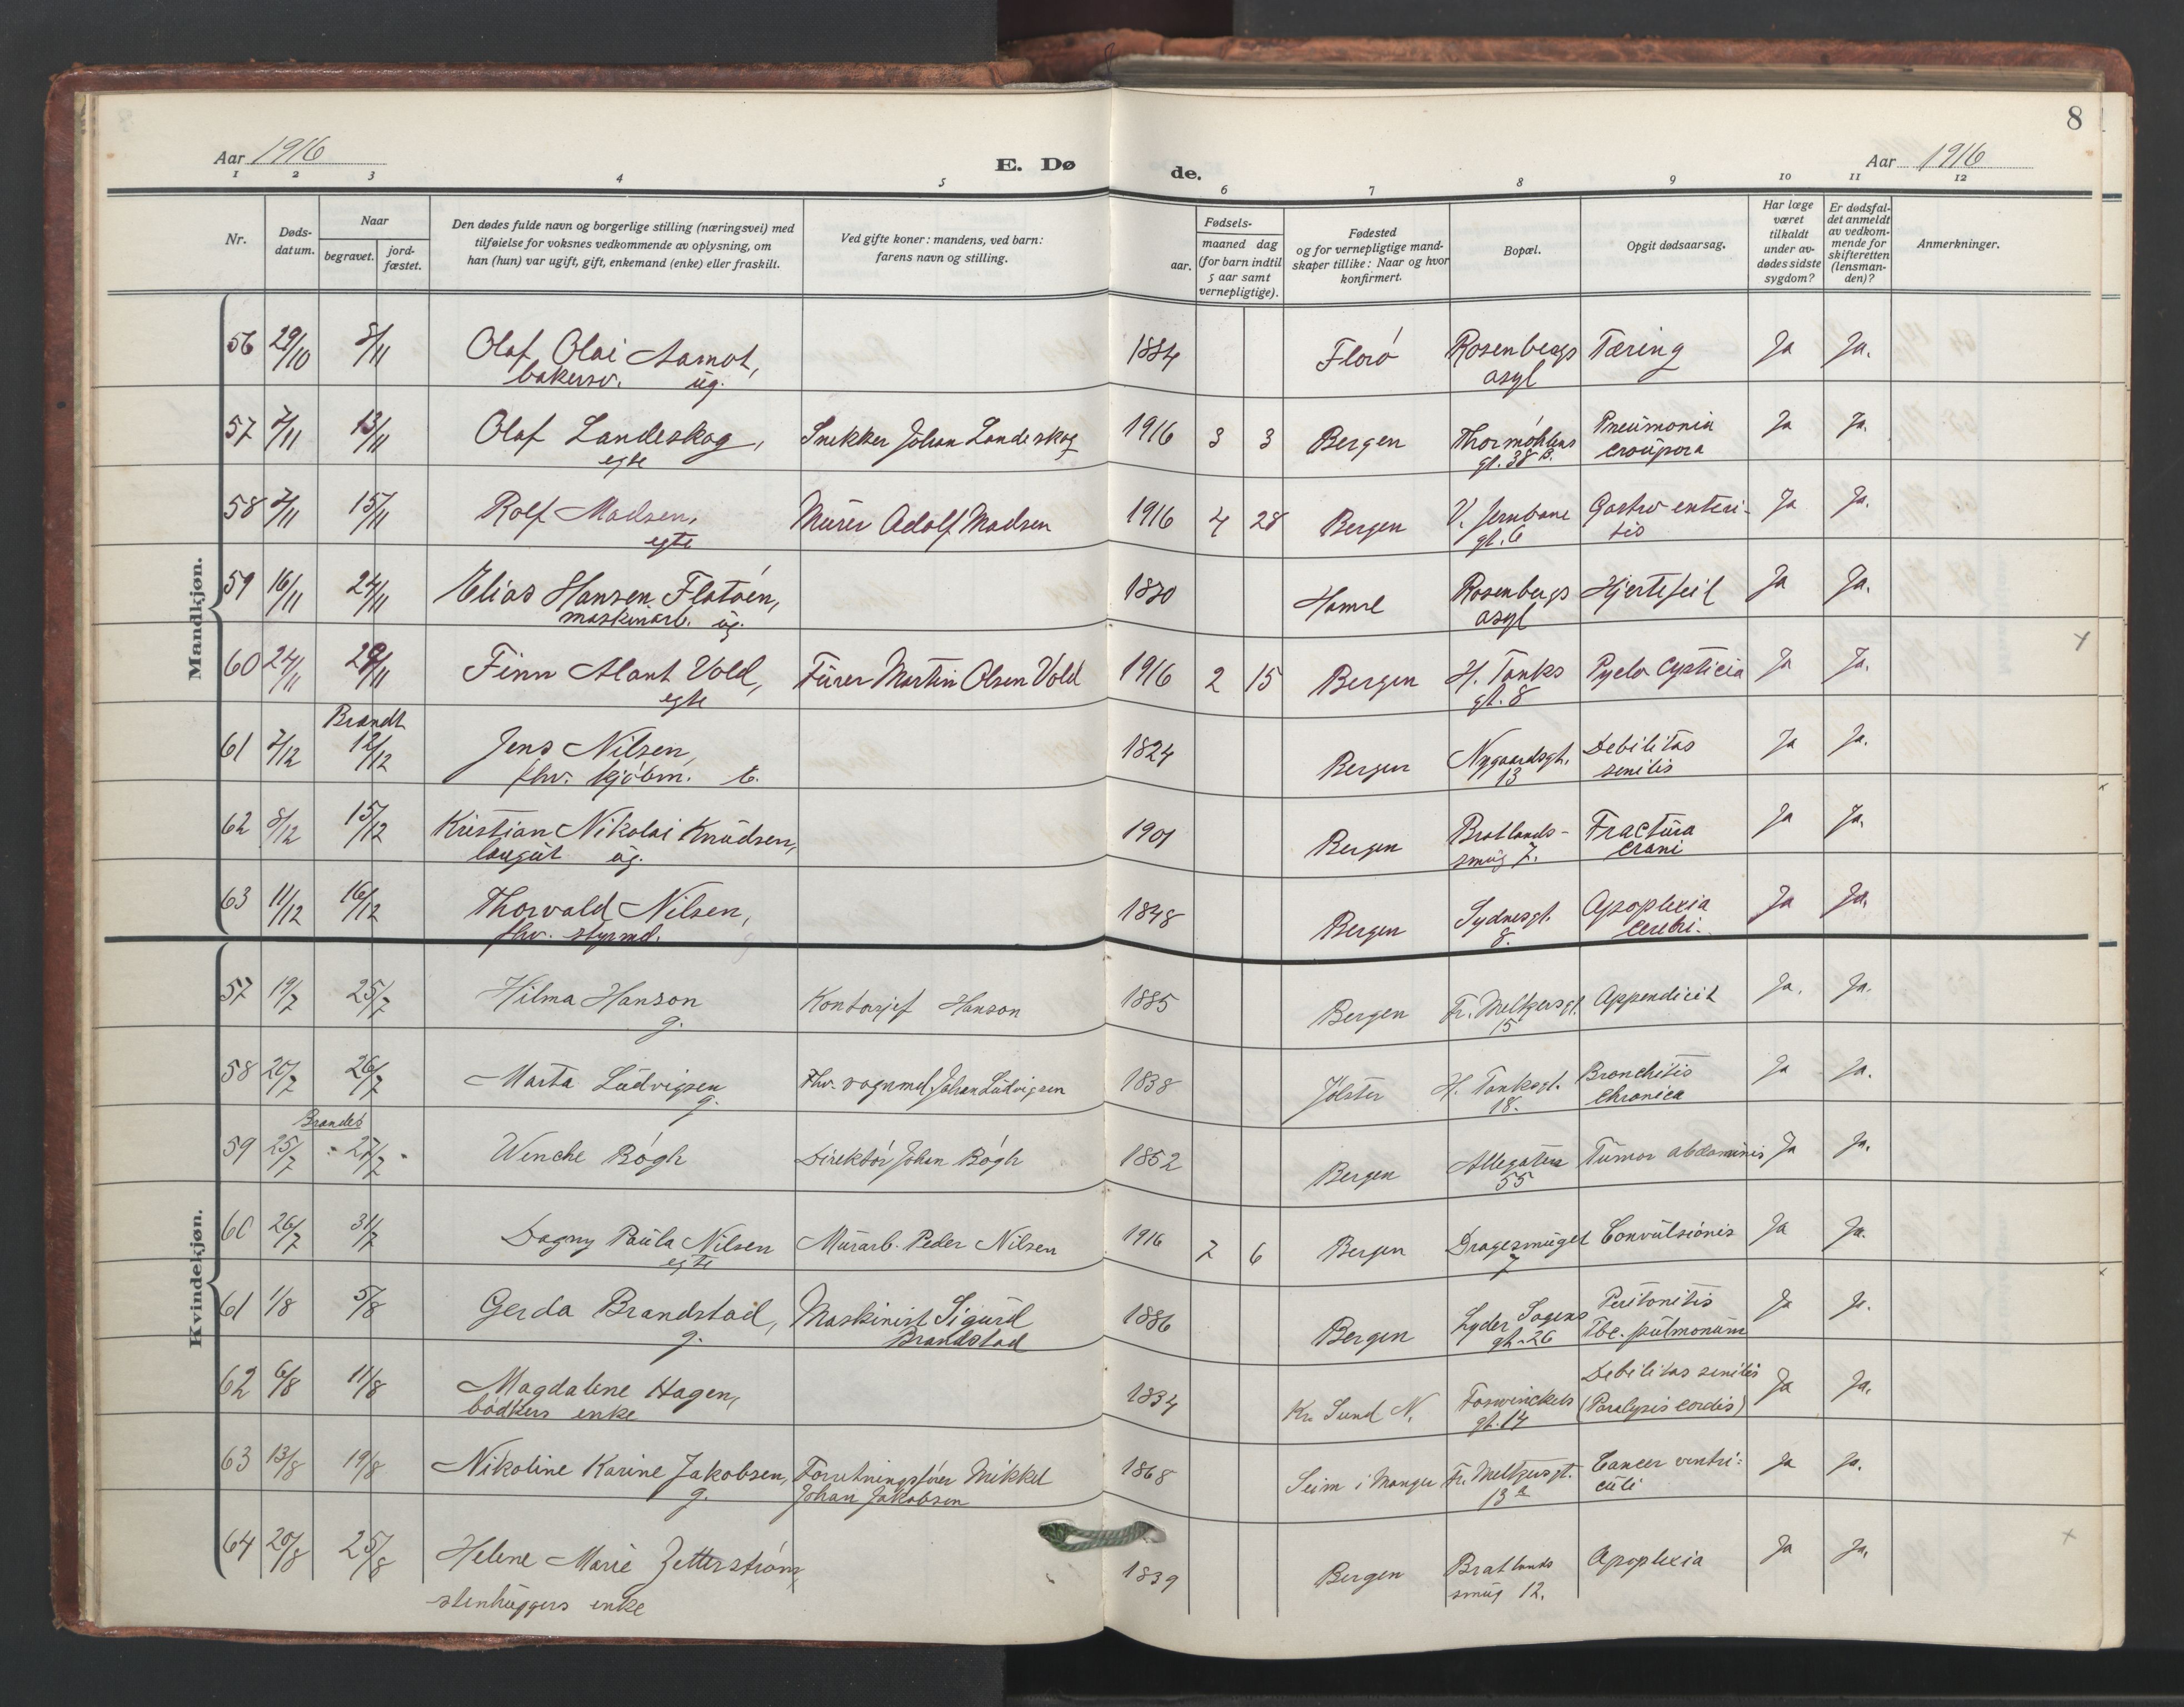 8
Aar 1916
E. Dø
de.
Aar 1916
1 2 3 4 5 6 7 8 9 10 11 12
Nr.
Døds-
datum.
Naar
begravet.
jord-
fæstet.
Den dødes fulde navn og borgerlige stilling (næringsvei) med
tilføielse for voksnes vedkommende av oplysning, om
han (hun) var ugift, gift, enkemand (enke) eller fraskilt.
Ved gifte koner: mandens, ved barn:
farens navn og stilling.
Fødsels-
aar.
maaned dag
(for barn indtil
5 aar samt
vernepligtige).
Fødested
og for vernepligtige mand-
skaper tillike: Naar og hvor
konfirmert.
Bopæl.
Opgit dødsaarsag.
Har læge
været
tilkaldt
under av-
dødes sidste
sygdom?
Er dødsfal-
det anmeldt
av vedkom-
mende for
skifteretten
(lensman-
den)?
Anmerkninger.
Mandkjøn.
56 29/10 8/11 Olaf Olai Aamot, 1884 Florø Rosenbergs Tæring Ja Ja.
bakersv. ug. asyl
57 7/11 13/11 Olaf Landeskog, Snekker Johan Landeskog 1916 3 3 Bergen Thormøhlens Pneumonia Ja Ja.
egte gt. 38 B. crouposa
58 7/11 15/11 Rolf Madsen, Murer Adolf Madsen 1916 4 28 Bergen V. Jernbane Gastro enteri- Ja Ja.
egte gt. 6 tis
59 16/11 24/11 Elias Hansen Flatøen, 1870 Hamre Rosenbergs Hjertefeil Ja Ja.
maskinarb. ug. asyl
60 24/11 29/11 Finn Alant Vold, Furer Martin Olsen Vold 1916 2 15 Bergen H. Tanks Pyelo Cysticia Ja Ja.
egte gt. 8
Brændt
61 7/12 12/12 Jens Nilsen, 1824 Bergen Nygaardsgt. Debilitas Ja Ja.
fhv. kjøbm. E. 13 senilis
62 8/12 15/12 Kristian Nikolai Knudsen, 1901 Bergen Bratlands- Fractura Ja Ja.
laugut ug. smug 7. crani
63 11/12 16/12 Thorvald Nilsen, 1848 Bergen Sydnesgt. Apoplexia Ja Ja.
fhv. styrmd. 8. cerebri.
Kvindekjøn.
57 19/7 25/7 Hilma Hanson Kontorsjef Hanson 1885 Bergen Fr. Meltzersgt. Appendicit Ja. Ja.
g. 15
58 20/7 26/7 Marta Ludvigsen Fhv. vognmd Johan Ludvigsen 1838 Jølster H. Tanksgt. Bronchitis Ja Ja.
g. 18. Chronica
Brændes
59 25/7 27/7 Wenche Bøgh Direktør Johan Bøgh 1852 Bergen Allegaten Tumor abdominis Ja Ja.
55
60 26/7 31/7 Dagny Paula Nilsen Murarb. Peder Nilsen 1916 7 6 Bergen Dragesmuget Convulsionis Ja Ja.
egte 7
61 1/8 5/8 Gerda Brandstad, Maskinist Sigurd 1886 Bergen Lyder Sagens Peritonitis Ja Ja.
g. Brandstad gt. 26 Tbc. pulmonum
62 6/8 11/8 Magdalene Hagen, 1834 Kr. Sund N. Foswinckels Debilitas senilis Ja Ja.
bødkers enke gt. 14 (Paralysis cordis)
63 13/8 19/8 Nikoline Karine Jakobsen, Forretningsfører Mikkel 1868 Seim i Manger Fr. Meltzersgt. Cancer ventri- Ja Ja.
g. Johan Jakobsen 13 a culi
64 20/8 25/8 Helene Marie Zetterstrøm, 1839 Bergen Bratlands Apoplexia Ja Ja.
stenhuggers enke smug 12.